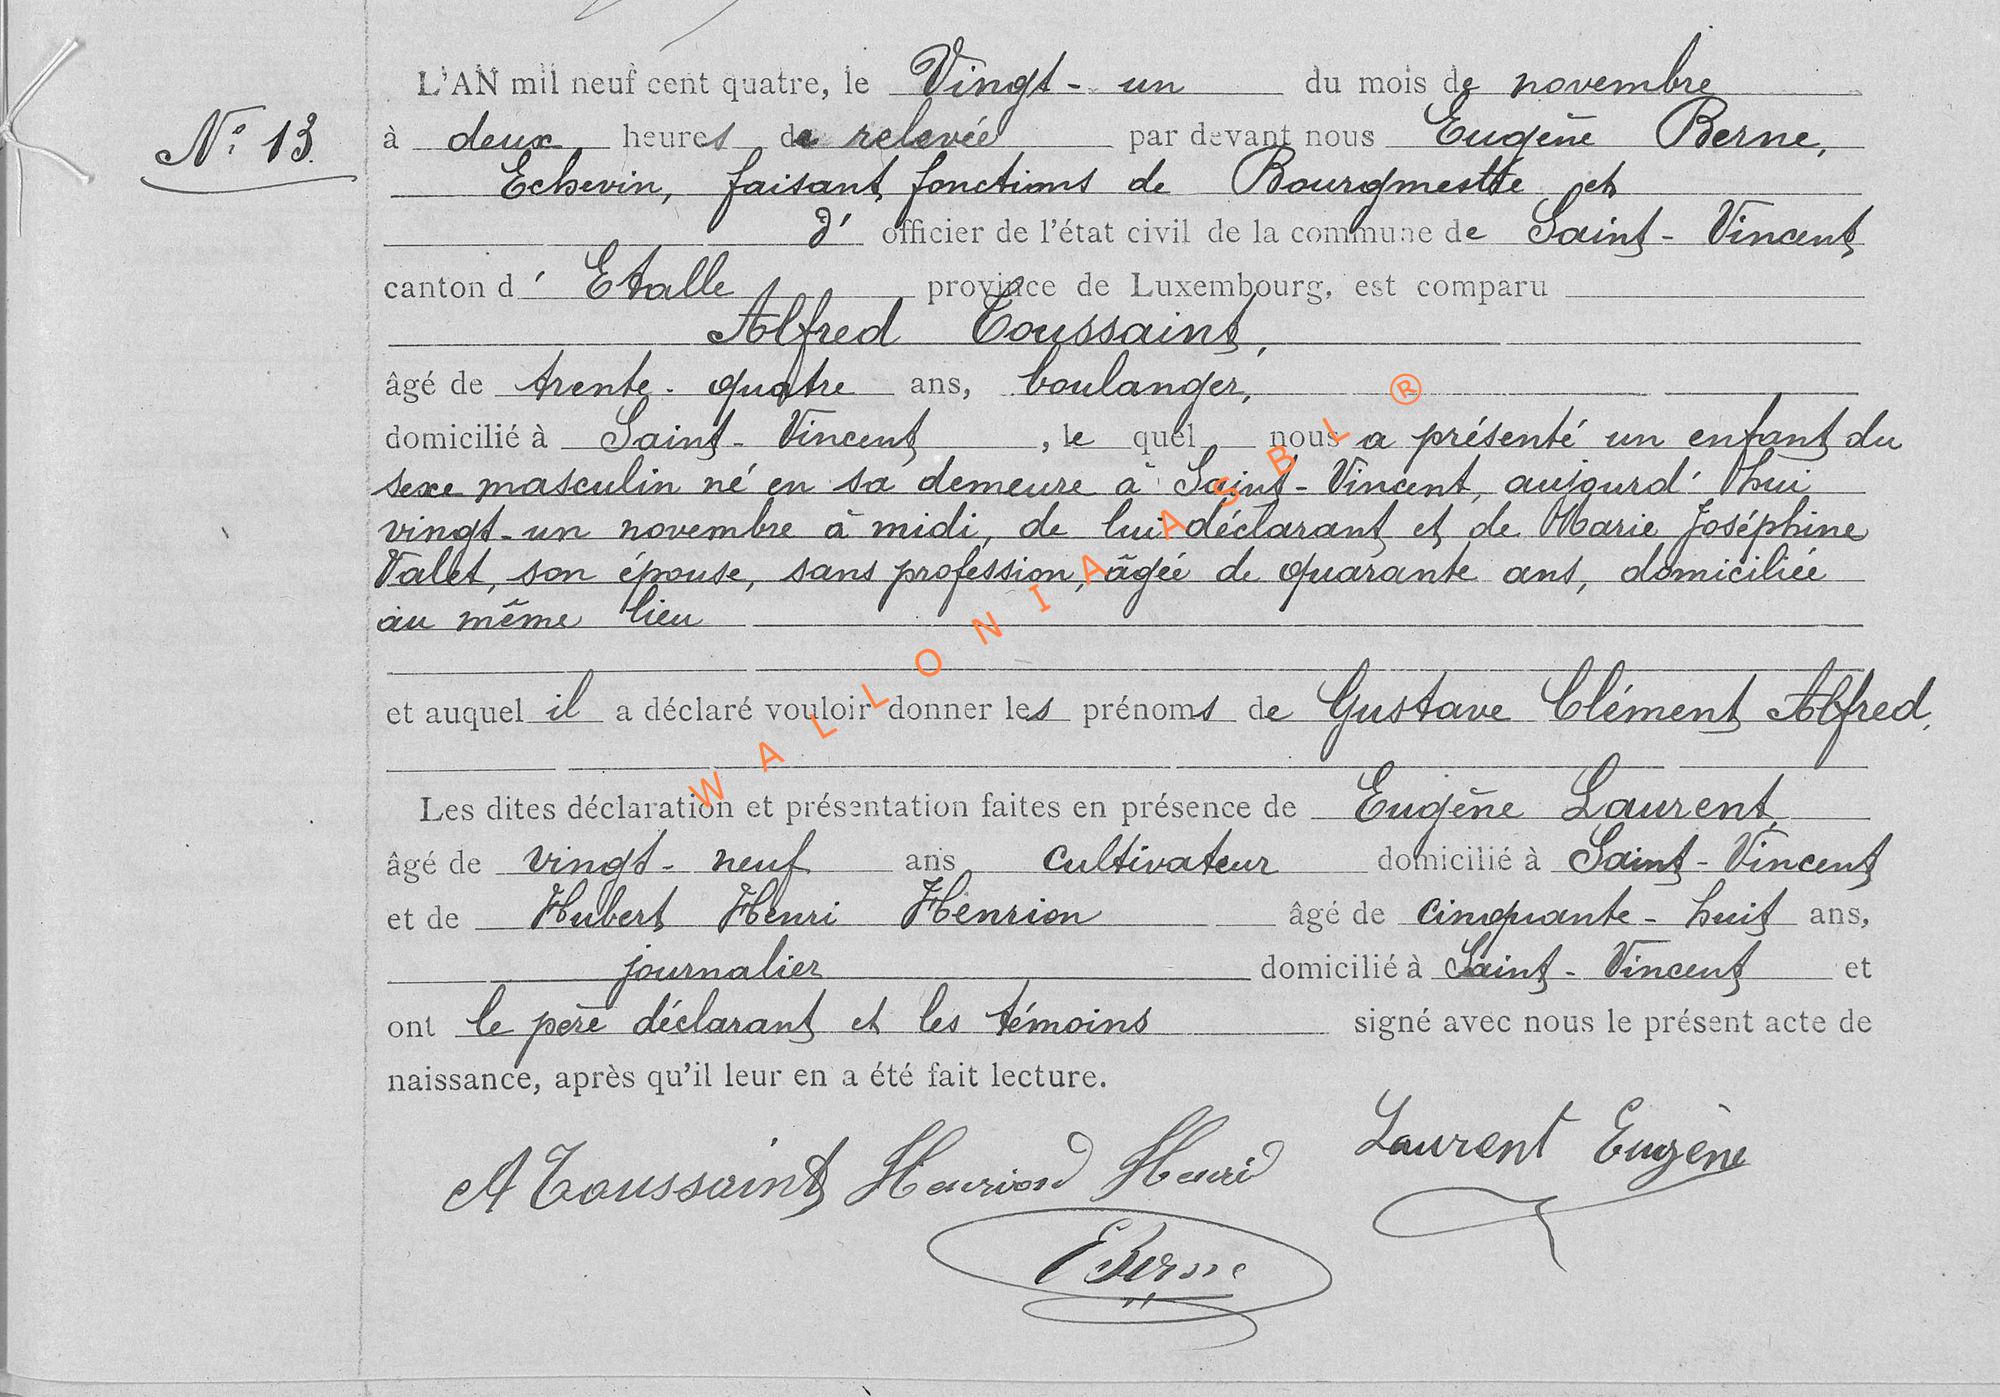 N° 13.
L'AN mil neuf cent quatre, le Vingt-un du mois de novembre
à deux heures de relevée par devant nous Eugène Berne,
Echevin, faisant fonctions de Bourgmestre et
d' officier de l'état civil de la commune de Saint-Vincent
canton d' Etalle province de Luxembourg, est comparu
Alfred Toussaint,
âgé de trente-quatre ans, boulanger,
domicilié à Saint-Vincent, le quel nous a présenté un enfant du
sexe masculin né en sa demeure à Saint-Vincent, aujourd'hui
vingt-un novembre à midi, de lui déclarant et de Marie Joséphine
Valet, son épouse, sans profession, âgée de quarante ans, domiciliée
au même lieu
et auquel il a déclaré vouloir donner les prénoms de Gustave Clément Alfred.
Les dites déclaration et présentation faites en présence de Eugène Laurent,
âgé de vingt-neuf ans cultivateur domicilié à Saint-Vincent
et de Hubert Henri Henrion âgé de cinquante-huit ans,
journalier domicilié à Saint-Vincent et
ont le père déclarant et les témoins signé avec nous le présent acte de
naissance, après qu'il leur en a été fait lecture.
A Toussaint Henriond Henrid Laurent Eugène
EBerne
WALLONIA ASBL ®